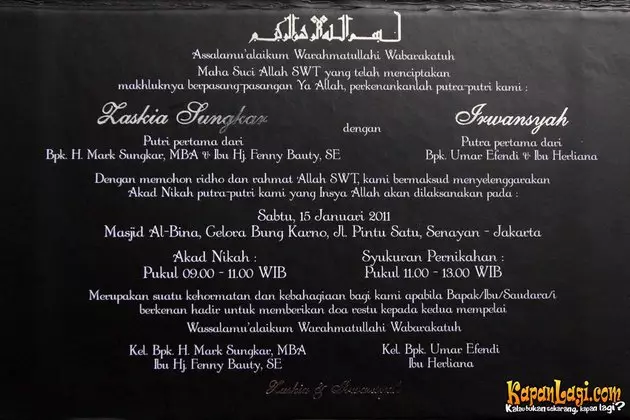 بسم الله الرحمن الرحيم
Assalamu'alaikum Warahmatullahi Wabarakatuh
Maha Suci Allah SWT yang telah menciptakan
makhluknya berpasang-pasangan Ya Allah, perkenankanlah putra-putri kami :
Zaskia Sungkar dengan Irwansyah
Putri pertama dari Putra pertama dari
Bpk. H. Mark Sungkar, MBA & Ibu Hj. Fenny Bauty, SE Bpk. Umar Efendi & Ibu Herliana
Dengan memohon ridho dan rahmat Allah SWT, kami bermaksud menyelenggarakan
Akad Nikah putra-putri kami yang Insya Allah akan dilaksanakan pada :
Sabtu, 15 Januari 2011
Masjid Al-Bina, Gelora Bung Karno, Jl. Pintu Satu, Senayan - Jakarta
Akad Nikah : Syukuran Pernikahan :
Pukul 09.00 - 11.00 WIB Pukul 11.00 - 13.00 WIB
Merupakan suatu kehormatan dan kebahagiaan bagi kami apabila Bapak/Ibu/Saudara/i
berkenan hadir untuk memberikan doa restu kepada kedua mempelai
Wassalamu'alaikum Warahmatullahi Wabarakatuh
Kel. Bpk. H. Mark Sungkar, MBA Kel. Bpk. Umar Efendi
Ibu Hj. Fenny Bauty, SE Ibu Herliana
Zaskia & Irwansyah
KapanLagi.com
Kalau bukan sekarang, kapan lagi?